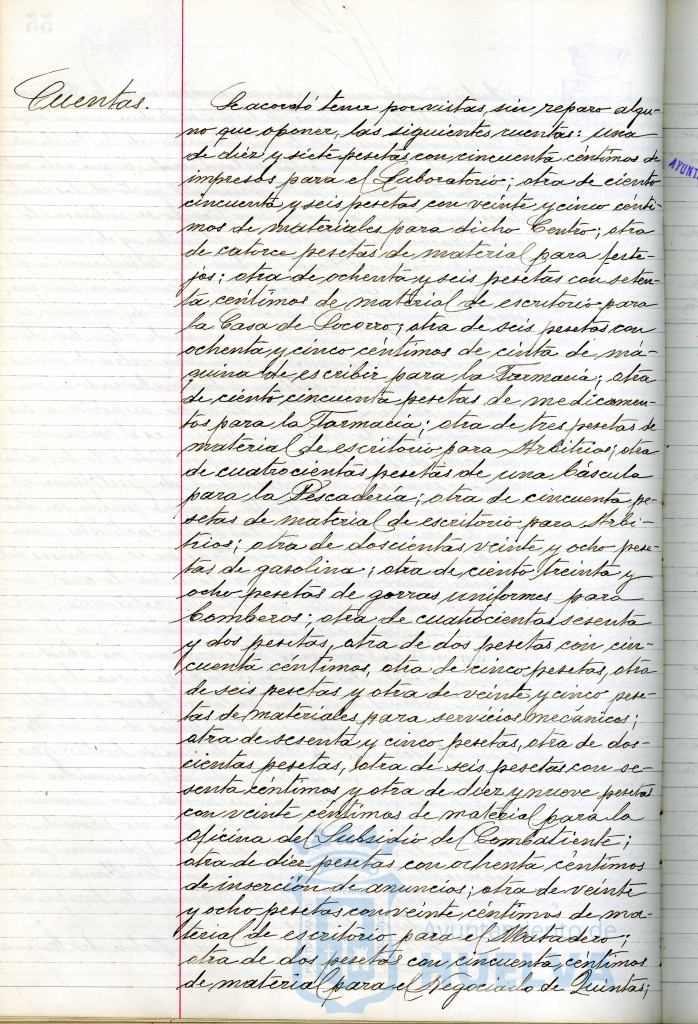 Cuentas.
Se acordó tener por vistas, sin reparo algu-
no que oponer, las siguientes cuentas: una
de diez y siete pesetas con cincuenta céntimos de
impresos para el Laboratorio; otra de ciento
cincuenta y seis pesetas con veinte y cinco cénti-
mos de materiales para dicho Centro; otra
de catorce pesetas de material para feste-
jos; otra de ochenta y seis pesetas con seten-
ta céntimos de material de escritorio para
la Casa de Socorro; otra de seis pesetas con
ochenta y cinco céntimos de cinta de má-
quina de escribir para la Farmacia; otra
de ciento cincuenta pesetas de medicamen-
tos para la Farmacia; otra de tres pesetas de
material de escritorio para Arbitrios; otra
de cuatrocientas pesetas de una báscula
para la Pescadería; otra de cincuenta pe-
setas de material de escritorio para Arbi-
trios; otra de doscientas veinte y ocho pese-
tas de gasolina; otra de ciento treinta y
ocho pesetas de gorras uniformes para
Bomberos; otra de cuatrocientas sesenta
y dos pesetas, otra de dos pesetas con cin-
cuenta céntimos, otra de cinco pesetas, otra
de seis pesetas y otra de veinte y cinco pese-
tas de materiales para servicios mecánicos;
otra de sesenta y cinco pesetas, otra de dos-
cientas pesetas, otra de seis pesetas con se-
senta céntimos y otra de diez y nueve pesetas
con veinte céntimos de material para la
oficina del Subsidio del Combatiente;
otra de diez pesetas con ochenta céntimos
de inserción de anuncios; otra de veinte
y ocho pesetas con veinte céntimos de ma-
terial de escritorio para el Matadero;
otra de dos pesetas con cincuenta céntimos
de material para el Negociado de Quintas;
AYUNT
Ayuntamiento de
HUELVA